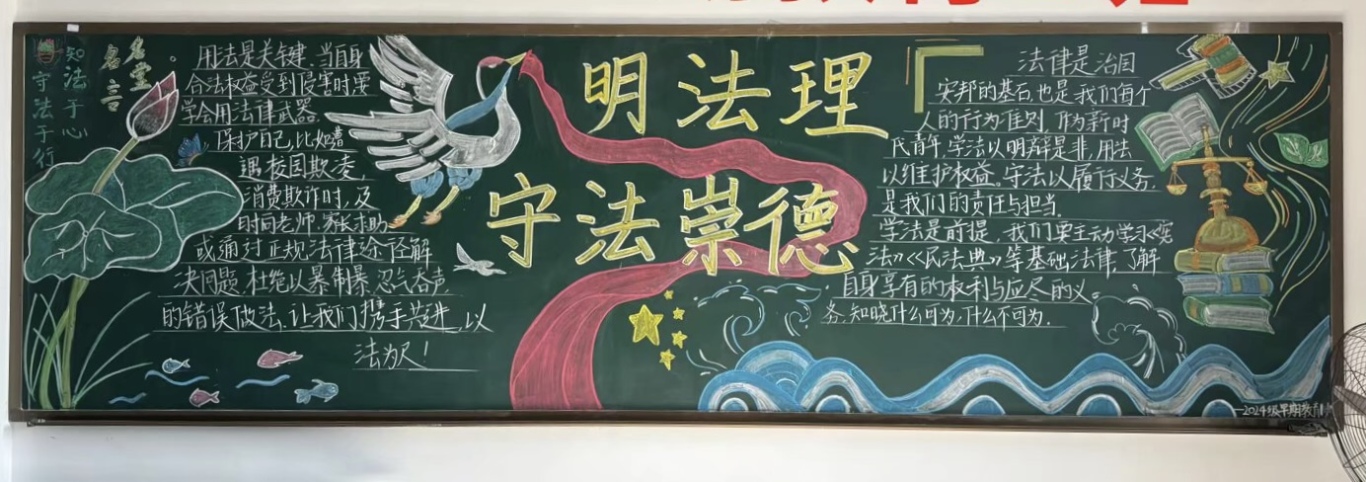 知法于心
守法于行
名言
名堂
用法是关键，当自身
合法权益受到侵害时要
学会用法律武器
保护自己，比如
遇校园欺凌，
消费欺诈时，及
时向老师，家长求助
或通过正规法律途径解
决问题，杜绝以暴制暴，忍气吞声
的错误做法，让我们携手共进，以
法为尺！
明法理
守法崇德
法律是治国
安邦的基石，也是我们每个
人的行为准则，作为新时
代青年，学法以明辩是非，用法
以维护权益。守法以履行义务，
是我们的责任与担当。
学法是前提，我们要主动学习《宪
法》《民法典》等基础法律，了解
自身享有的权利与应尽的义
务，知晓什么可为，什么不可为。
—2024级早期教育